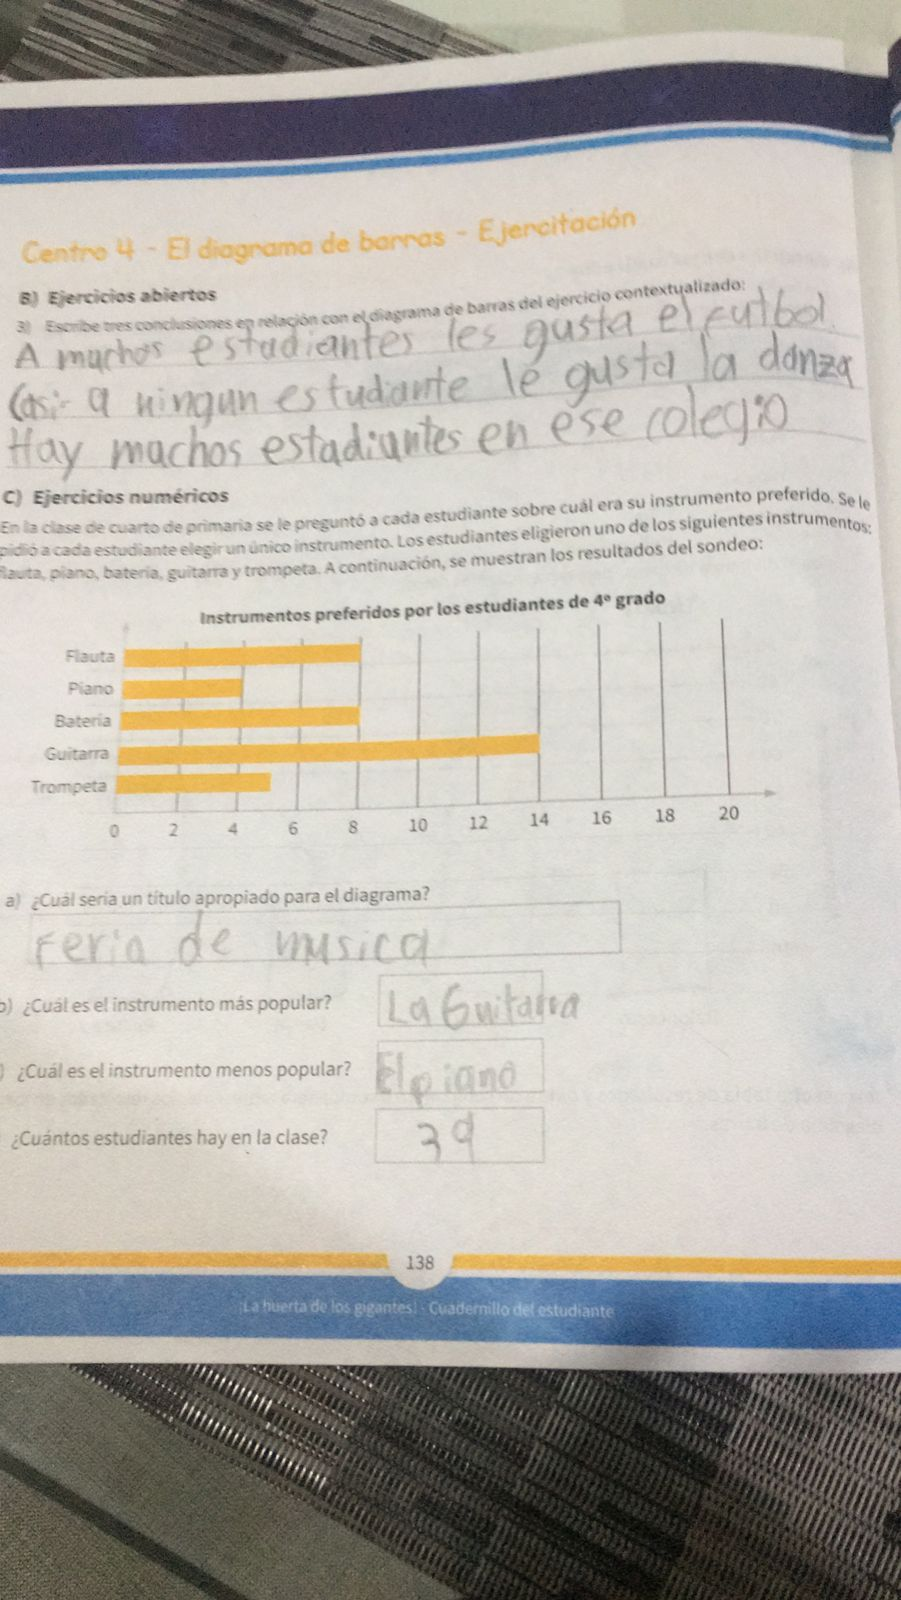 Centro 4 - El diagrama de barras - Ejercitación
B) Ejercicios abiertos
3) Escribe tres conclusiones en relación con el diagrama de barras del ejercicio contextualizado:
A muchos estadiantes les gusta el futbol.
Casi a ningun estudiante le gusta la danza
Hay muchos estadiantes en ese colegio
C) Ejercicios numéricos
En la clase de cuarto de primaria se le preguntó a cada estudiante sobre cuál era su instrumento preferido. Se le
pidió a cada estudiante elegir un único instrumento. Los estudiantes eligieron uno de los siguientes instrumentos:
flauta, piano, batería, guitarra y trompeta. A continuación, se muestran los resultados del sondeo:
Instrumentos preferidos por los estudiantes de 4º grado
Flauta
Piano
Batería
Guitarra
Trompeta
0 2 4 6 8 10 12 14 16 18 20
a) ¿Cuál sería un título apropiado para el diagrama?
Feria de musica
b) ¿Cuál es el instrumento más popular?
La Guitarra
) ¿Cuál es el instrumento menos popular?
El piano
¿Cuántos estudiantes hay en la clase?
39
138
¡La huerta de los gigantes! - Cuadernillo del estudiante